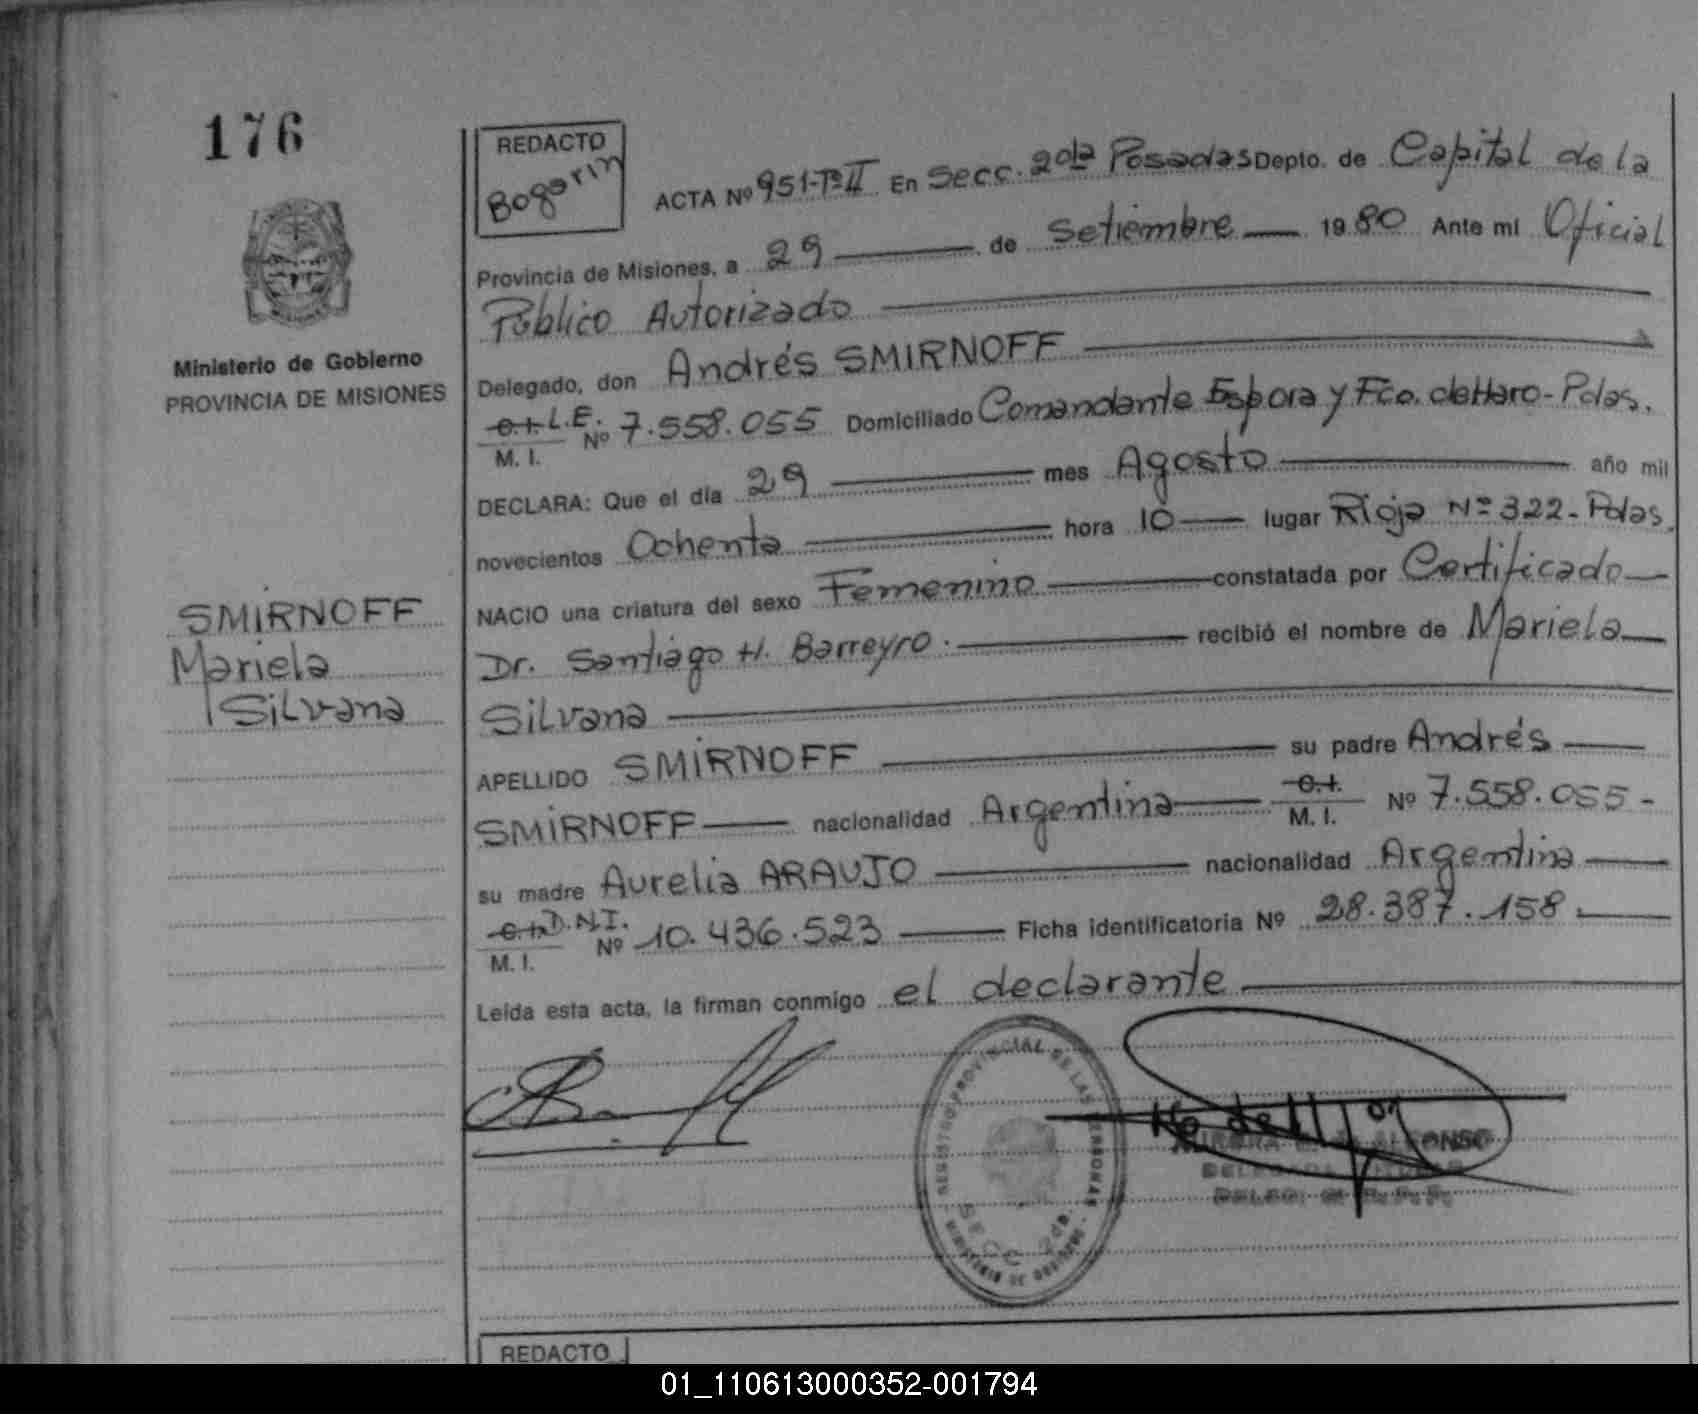 176
Ministerio de Gobierno
PROVINCIA DE MISIONES
SMIRNOFF
Mariela
Silvana
REDACTO
Bogarin
ACTA Nº 951-Tº II En Secc. 2da Posadas Depto. de Capital de la
Provincia de Misiones, a 29 de Setiembre 1980 Ante mi Oficial
Público Autorizado
Delegado, don Andrés SMIRNOFF
C.I. L.E.
M. I. Nº 7.558.055 Domiciliado Comandante Espora y Fco. de Haro - Pdas.
DECLARA: Que el día 29 mes Agosto año mil
novecientos Ochenta hora 10 lugar Rioja Nº 322 - Pdas.
NACIO una criatura del sexo Femenino constatada por Certificado
Dr. Santiago H. Barreyro. recibió el nombre de Mariela
Silvana
APELLIDO SMIRNOFF su padre Andrés
SMIRNOFF nacionalidad Argentina C.I. M. I. Nº 7.558.055 -
su madre Aurelia ARAUJO nacionalidad Argentina
C.I. D.N.I.
M. I. Nº 10.436.523 Ficha identificatoria Nº 28.387.158.
Leída esta acta, la firman conmigo el declarante
REGISTRO PROVINCIAL DE LAS PERSONAS
SECC 2da.
MINISTERIO DE GOBIERNO
ALFONSO
DELEGADA TITULAR
REDACTO
01_110613000352-001794